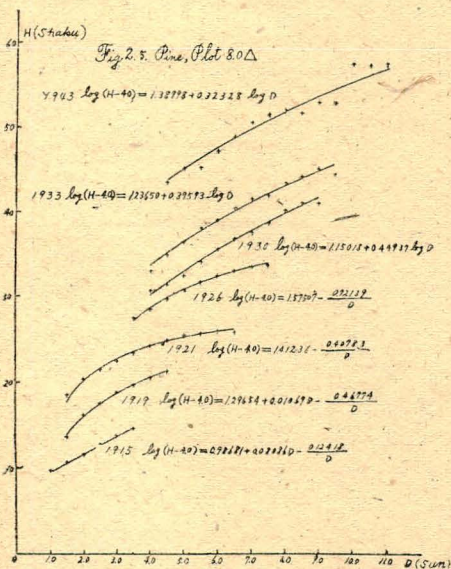 H(Shaku)
Fig. 2.5. Pine, Plot 8.0△
60
1943 log(H-4.0)=1.38798+0.32328 log D
50
1933 log(H-4.0)=1.23650+0.39593 log D
40
1930 log(H-4.0)=1.15018+0.44937 log D
30
1926 log(H-4.0)=1.57507- 0.92139/D
1921 log(H-4.0)=1.41236-
20
1919 log(H-4.0)=1.29654+0.01069D- 0.46774/D
1915 log(H-4.0)=0.98681+0.08086D- 0.12418/D
10
0 1.0 2.0 3.0 4.0 5.0 6.0 7.0 8.0 9.0 10.0 11.0 D(Sun)